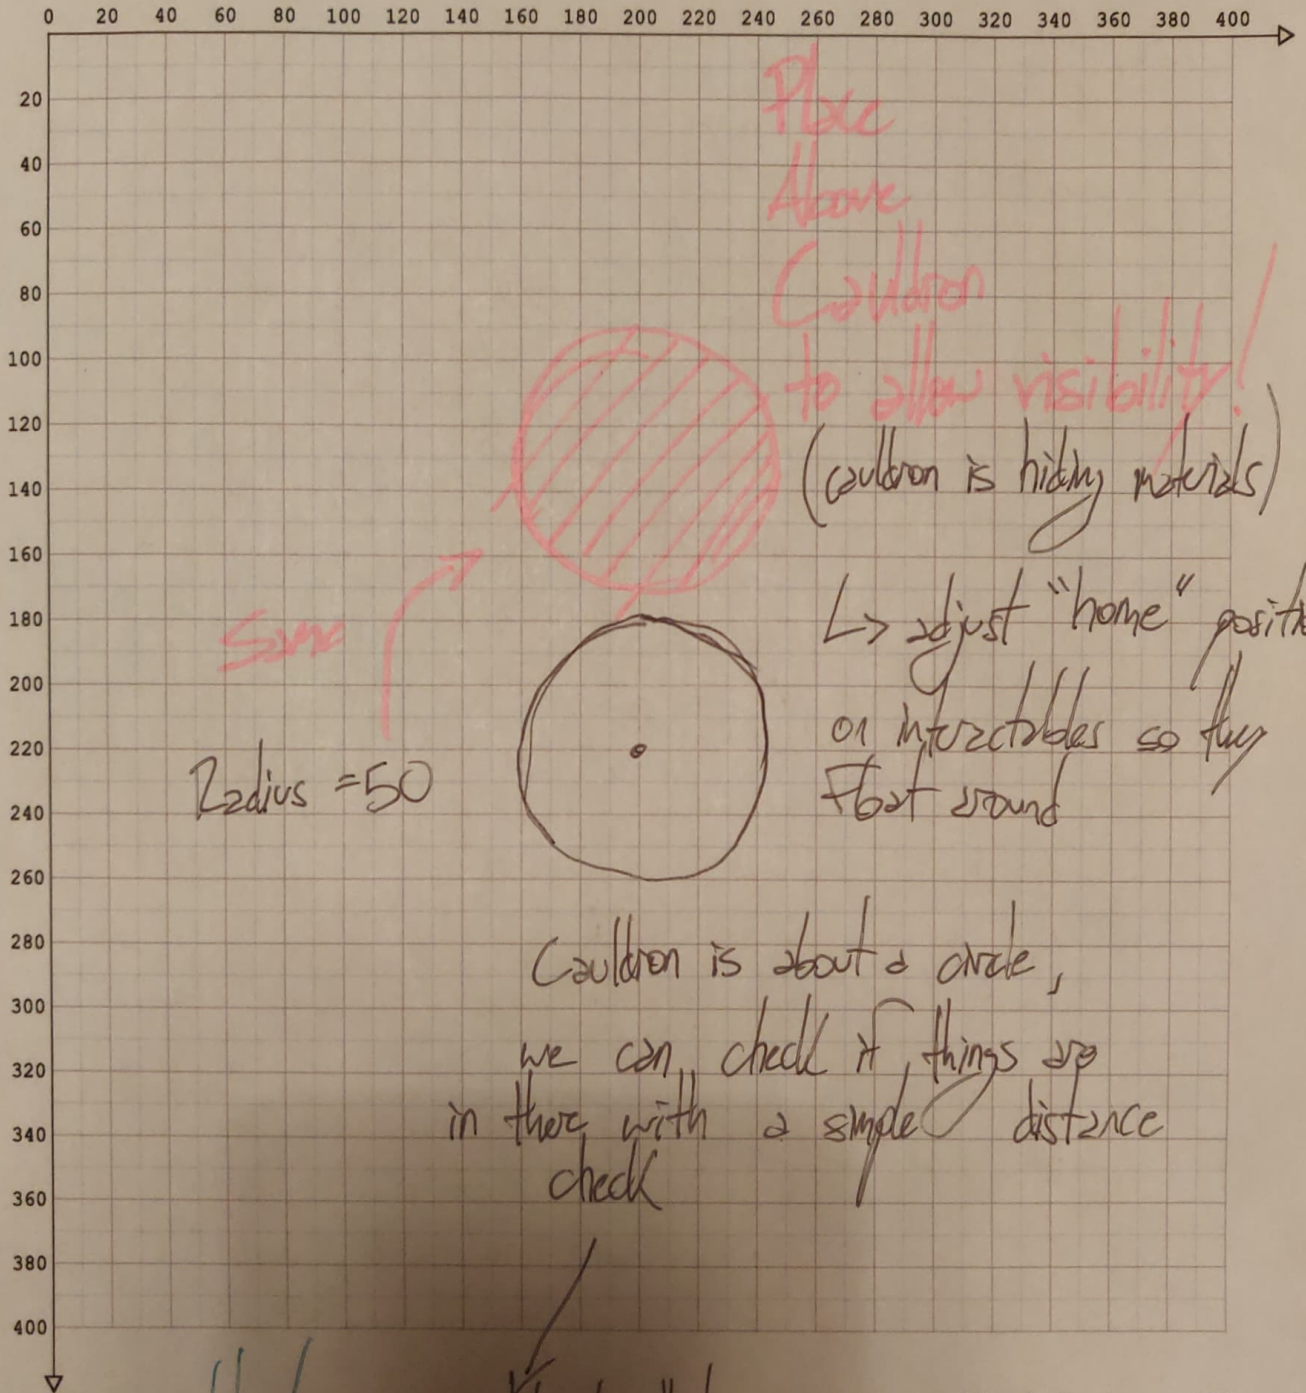 0 20 40 60 80 100 120 140 160 180 200 220 240 260 280 300 320 340 360 380 400
20
40
60
80
100
120
140
160
180
200
220
240
260
280
300
320
340
360
380
400
Place
Above
Cauldron
to allow visibility!
(cauldron is hiding materials)
↳ adjust "home" positi
on interactables so they
Float around
Same
Radius = 50
Cauldron is about a circle,
we can check if things are
in there with a simple distance
check